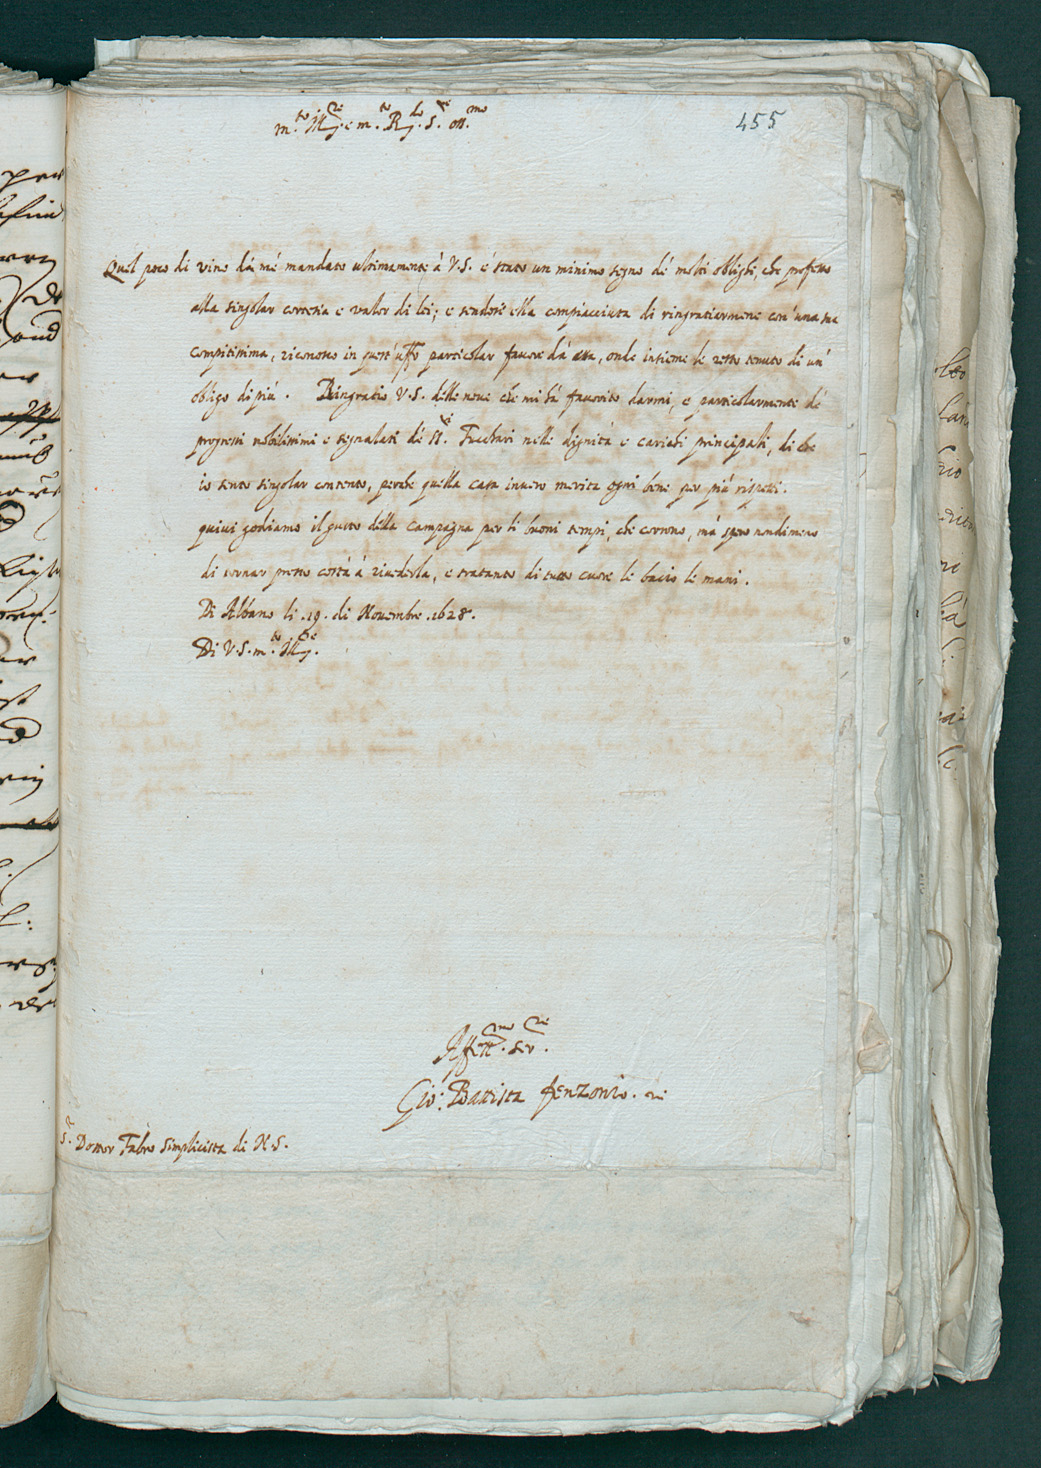 455
m.to Ill.re e m.to R.do S.re oss.mo
Quel poco di vino dà mè mandato ultimamente à V.S. è stato un minimo segno dè molti oblighi, che professo
alla singolar cortesia e valor di lei; e sendosi ella compiacciuta di ringratiarmene con una sua
compitissima, riconosco in quest'uff.o particolar favore dà essa, onde insieme le resto tenuto di un'
obligo di più. Ringratio V.S. delle nove che mi hà favorito darmi, e particolarmente dè
progressi nobilissimi e segnalati dè SS.ri Fuccheri nelle dignità e carichi principali, di che
io sento singolar contento, perche quella casa invero merita ogni bene per più rispetti.
quivi godiamo il gusto della campagna per li buoni tempi, che corrono, mà spero nondimeno
di tornar presto costà à riviederla, e tratanto di tutto cuore le bacio le mani.
Di Albano li .19. di Novembre .1628.
Di V.S. m.to Ill.re
Affett.mo Ser.re
Gio: Battista Fenzonio.
S.r Dottor Fabro Simplicista di N.S.